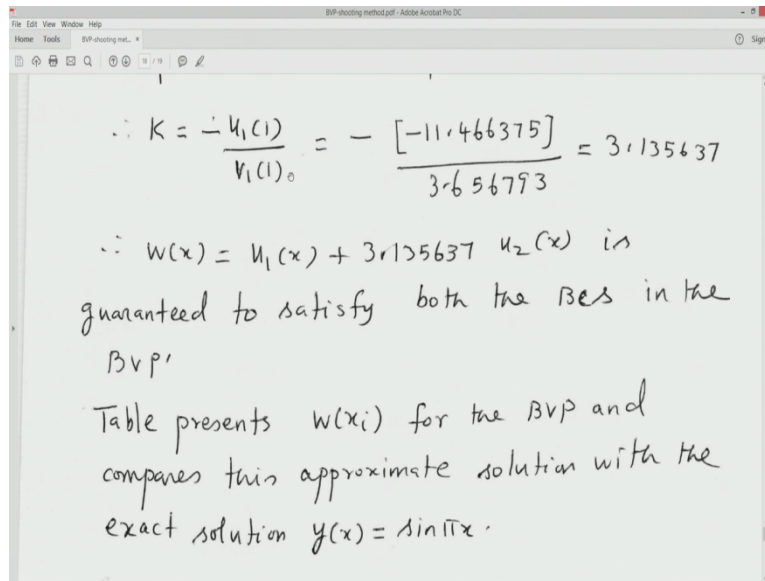 BVP-shooting method.pdf - Adobe Acrobat Pro DC
File Edit View Window Help
Home Tools BVP-shooting met... ×
Sign
18 / 19
∴ K = -U₁(1) / V₁(1) = - [-11.466375] / 3.656793 = 3.135637
∴ W(x) = U₁(x) + 3.135637 U₂(x) is
guaranteed to satisfy both the BCs in the
BVP.
Table presents W(xᵢ) for the BVP and
compares this approximate solution with the
exact solution y(x) = sin πx.